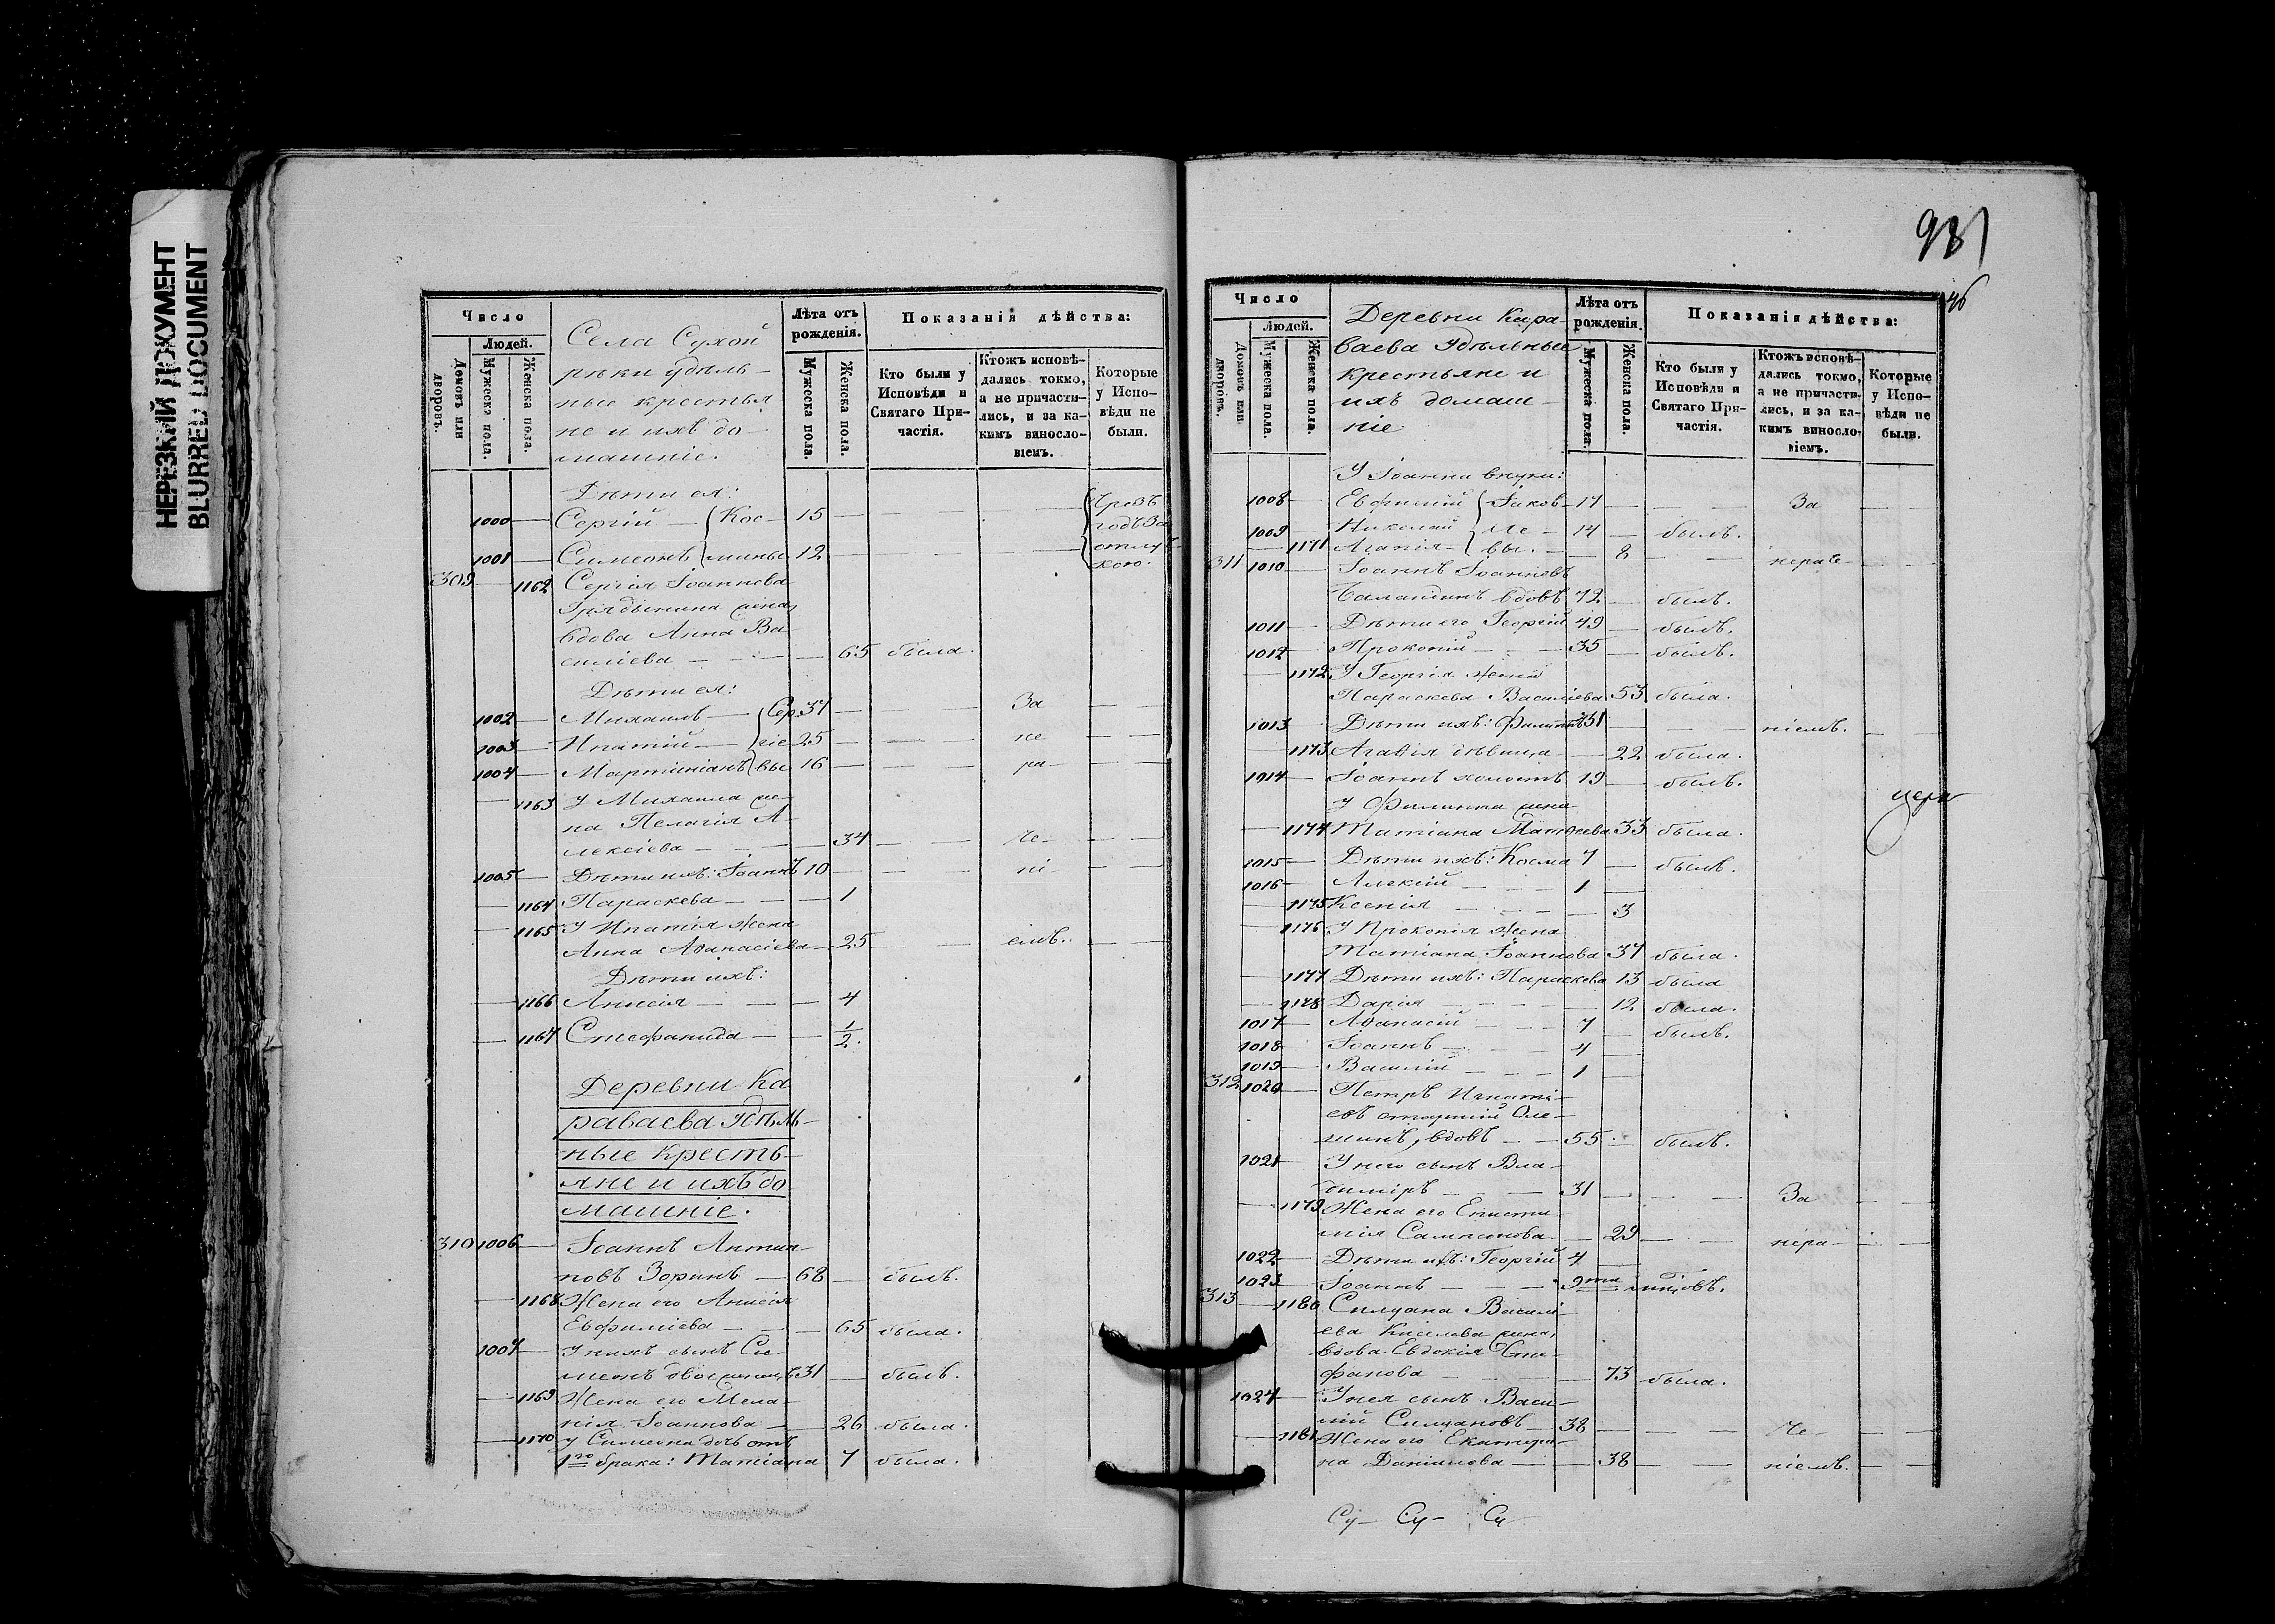 НЕРЕЗКИЙ ДОКУМЕНТ
BLURRED DOCUMENT
Число
Людей.
Домовъ или дворовъ.
Мужеска пола.
Женска пола.
Села Сухой
рѣки удѣль-
ные крестья
не и ихъ до-
машніе.
Лѣта отъ
рожденія.
Мужеска пола.
Женска пола.
Показанія дѣйства:
Кто были у
Исповѣди и
Святаго При-
частія.
Ктожъ исповѣ-
дались токмо,
а не причасти-
лись, и за ка-
кимъ винос​ло-
віемъ.
Которые
у Испо-
вѣди не
были.
Дѣти ея:
1000 Сергій — Кос- 15
1001 Симеонъ мины 12
309 1162 Сергія Іоаннова
жена,
вдова Анна Ва-
силіева — 65 была.
Дѣти ея:
1002 Михаилъ — Сер 37 За
1003 Ипатій — гіе 25 не
1004 Мартиніанъ вы 16 ра-
1163 У Михаила же-
на Пелагія А-
лексіева — 34 че-
1005 Дѣти ихъ: Іоаннъ 10 ні-
1164 Параскева — 1
1165 У Ипатія жена
Анна Аѳанасіева — 25 емъ.
Дѣти ихъ:
1166 Анисія — 4
1167 Стефанида — 1/2.
Деревни Ка
раваева Удѣль-
ные Кресть-
яне и ихъ до
машніе.
310 1006 Іоаннъ Антип-
повъ Зоринъ — 68 былъ.
1168 Жена его Анисія
Евфиміева — 65 была.
1007 У нихъ сынъ Си-
31 былъ.
1169 Жена его Мела-
нія Іоаннова — 26 была.
1170 У Симеона дочь отъ
1го брака: Татіана 7 была.
931
46
Число
Людей.
Домовъ или дворовъ.
Мужеска пола.
Женска пола.
Деревни Кара-
ваева Удѣльные
крестьяне и
ихъ домаш-
ніе
Лѣта отъ
рожденія.
Мужеска пола.
Женска пола.
Показанія дѣйства:
Кто были у
Исповѣди и
Святаго При-
частія.
Ктожъ исповѣ-
дались токмо,
а не причасти-
лись, и за ка-
кимъ винос​ло-
віемъ.
Которые
у Испо-
вѣди не
были.
У Іоанна внуки:
1008 Евфимій Іаков- 17 За
1009 Николай ле- 14 былъ.
1171 Агапія вы. 8 нераче-
311 1010 Іоаннъ Іоанновъ
Баландинъ вдовъ 72 былъ.
1011 Дѣти его Георгій 49 былъ.
1012 Прокопій — 35 былъ.
1172 У Георгія жена
Параскева Василіева 53 была.
1013 Дѣти ихъ: Филиппъ 31 ніемъ.
1173 Агаѳія дѣвица — 22 была.
1014 Іоаннъ холостъ 19 былъ.
У Филиппа жена
1174 Татіана Матѳеева 33 была.
1015 Дѣти ихъ: Косма 7 былъ.
1016 1
1175 Ксенія — 3
1176 У Прокопія жена
Татіана Іоаннова 37 была.
1177 Дѣти ихъ: Параскева 13 была
1178 Дарія — 12 была.
1017 Аѳанасій — 7 былъ.
1018 Іоаннъ — 4
1019 Василій — 1
312 1020 Петръ Игнаті-
евъ
вдовъ — 55 былъ.
1021 У него сынъ Вла-
диміръ — 31 За
1179 Жена его Еписти-
мія Сампсонова — 29 нера-
1022 Дѣти ихъ: Георгій 4
1023 Іоаннъ — 9ти мѣсяцовъ.
313 1180 Силуана Василі-
ева Киселева жена,
вдова Евдокія Сте-
фанова — 73 была.
1024 У нея сынъ Васи-
лій Силуановъ — 38 че-
1181 Жена его Екатери-
на Даніилова — 38 ніемъ.
Су- Су- Су